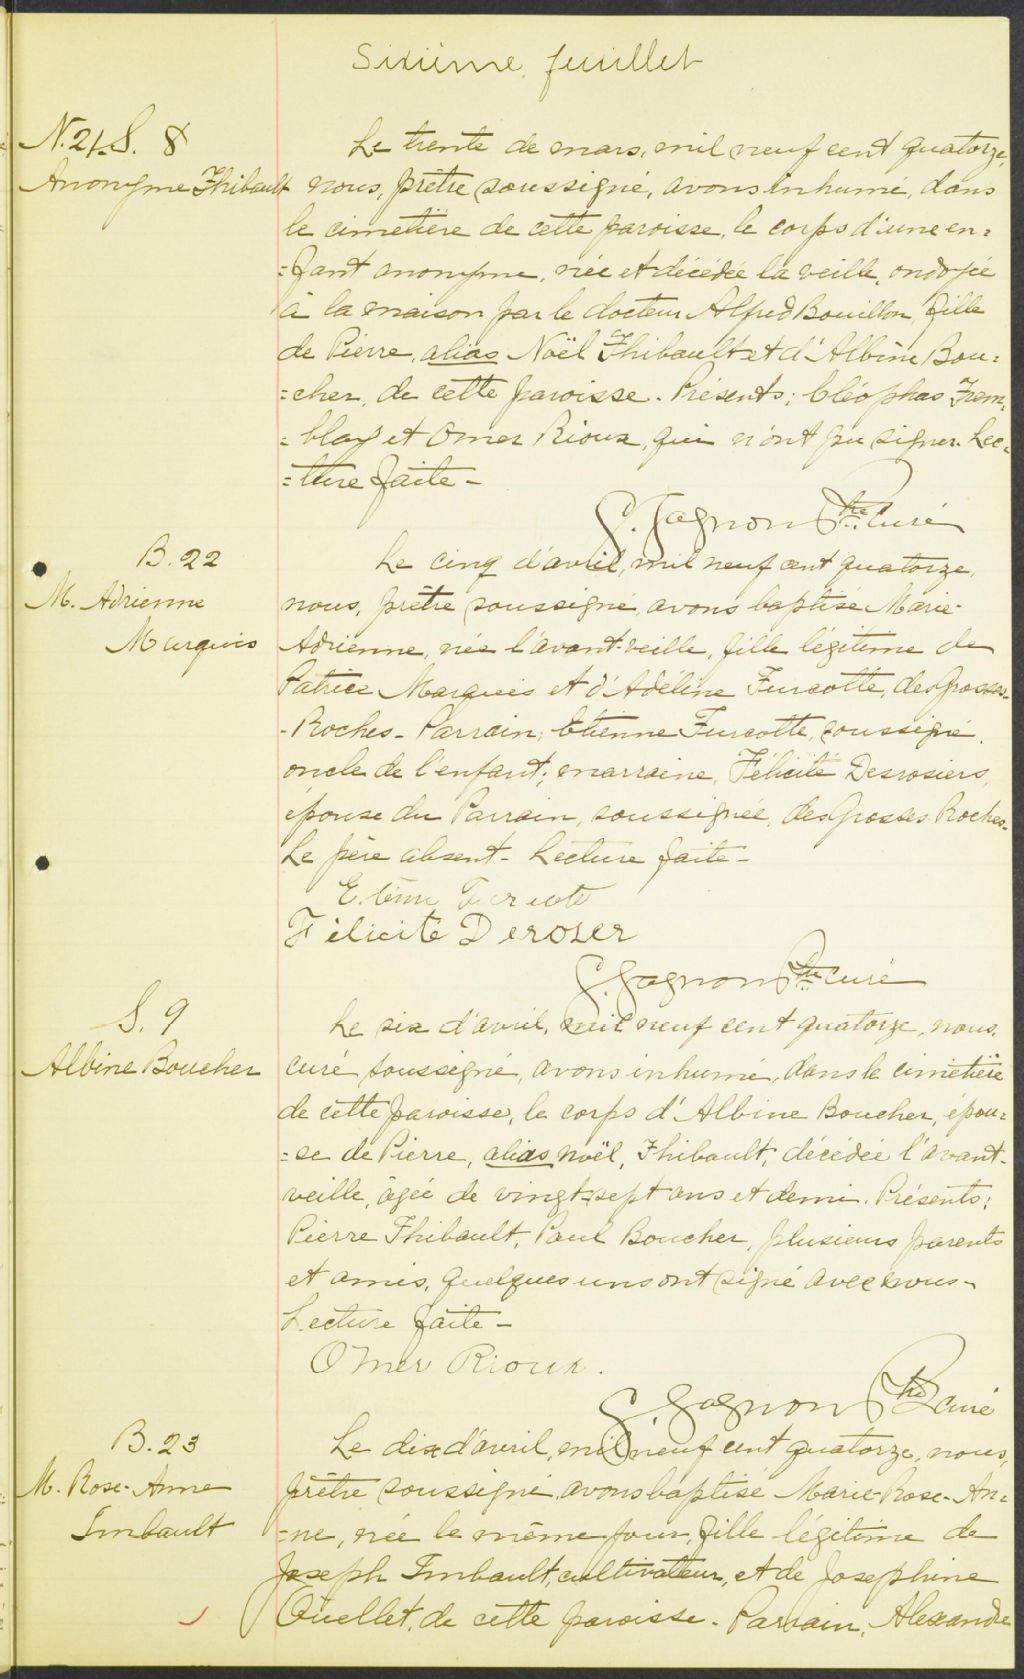 Sixième feuillet
N. 21. S. 8
Anonyme Thibault
Le trente de mars, mil neuf cent quatorze,
nous, prêtre soussigné, avons inhumé, dans
le cimetière de cette paroisse, le corps d'une en=
=fant anonyme, née et décédée la veille, ondoyée
à la maison par le docteur Alfred Bouillon, fille
de Pierre, alias Noël Thibault et d'Albine Bou=
=cher, de cette paroisse. Présents; Cléophas Trem=
=blay et Omer Rioux, qui n'ont pu signer. Lec=
=ture faite-
G. Gagnon Ptre Curé
B. 22
M. Adrienne
Marquis
Le cinq d'avril, mil neuf cent quatorze,
nous, prêtre soussigné, avons baptisé Marie-
Adrienne, née l'avant-veille, fille légitime de
Patrice Marquis et d'Adéline Turcotte, des Grosses-
-Roches- Parrain; Etienne Turcotte, soussigné,
oncle de l'enfant; marraine, Félicité Desrosiers,
épouse du Parrain, soussignée, des Grosses-Roches-
Le père absent- Lecture faite-
Félicité Deroser
G. Gagnon Ptre curé
S. 9
Albine Boucher
Le six d'avril, mil neuf cent quatorze, nous,
curé soussigné, avons inhumé, dans le cimetière
de cette paroisse, le corps d'Albine Boucher, épou=
=se de Pierre, alias Noël, Thibault, décédée l'avant-
veille, âgée de vingt-sept ans et demi. Présents:
Pierre Thibault, Paul Boucher, plusieurs parents
et amis, quelques uns ont signé avec nous-
Lecture faite-
Omer Rioux.
G. Gagnon Ptre Curé
B. 23
M. Rose-Anne
Imbault
Le dix d'avril, mil neuf cent quatorze, nous,
prêtre soussigné, avons baptisé Marie-Rose-An=
=ne, née le même jour, fille légitime de
Joseph Imbault, cultivateur, et de Josephine
Ouellet, de cette paroisse- Parrain, Alexandre